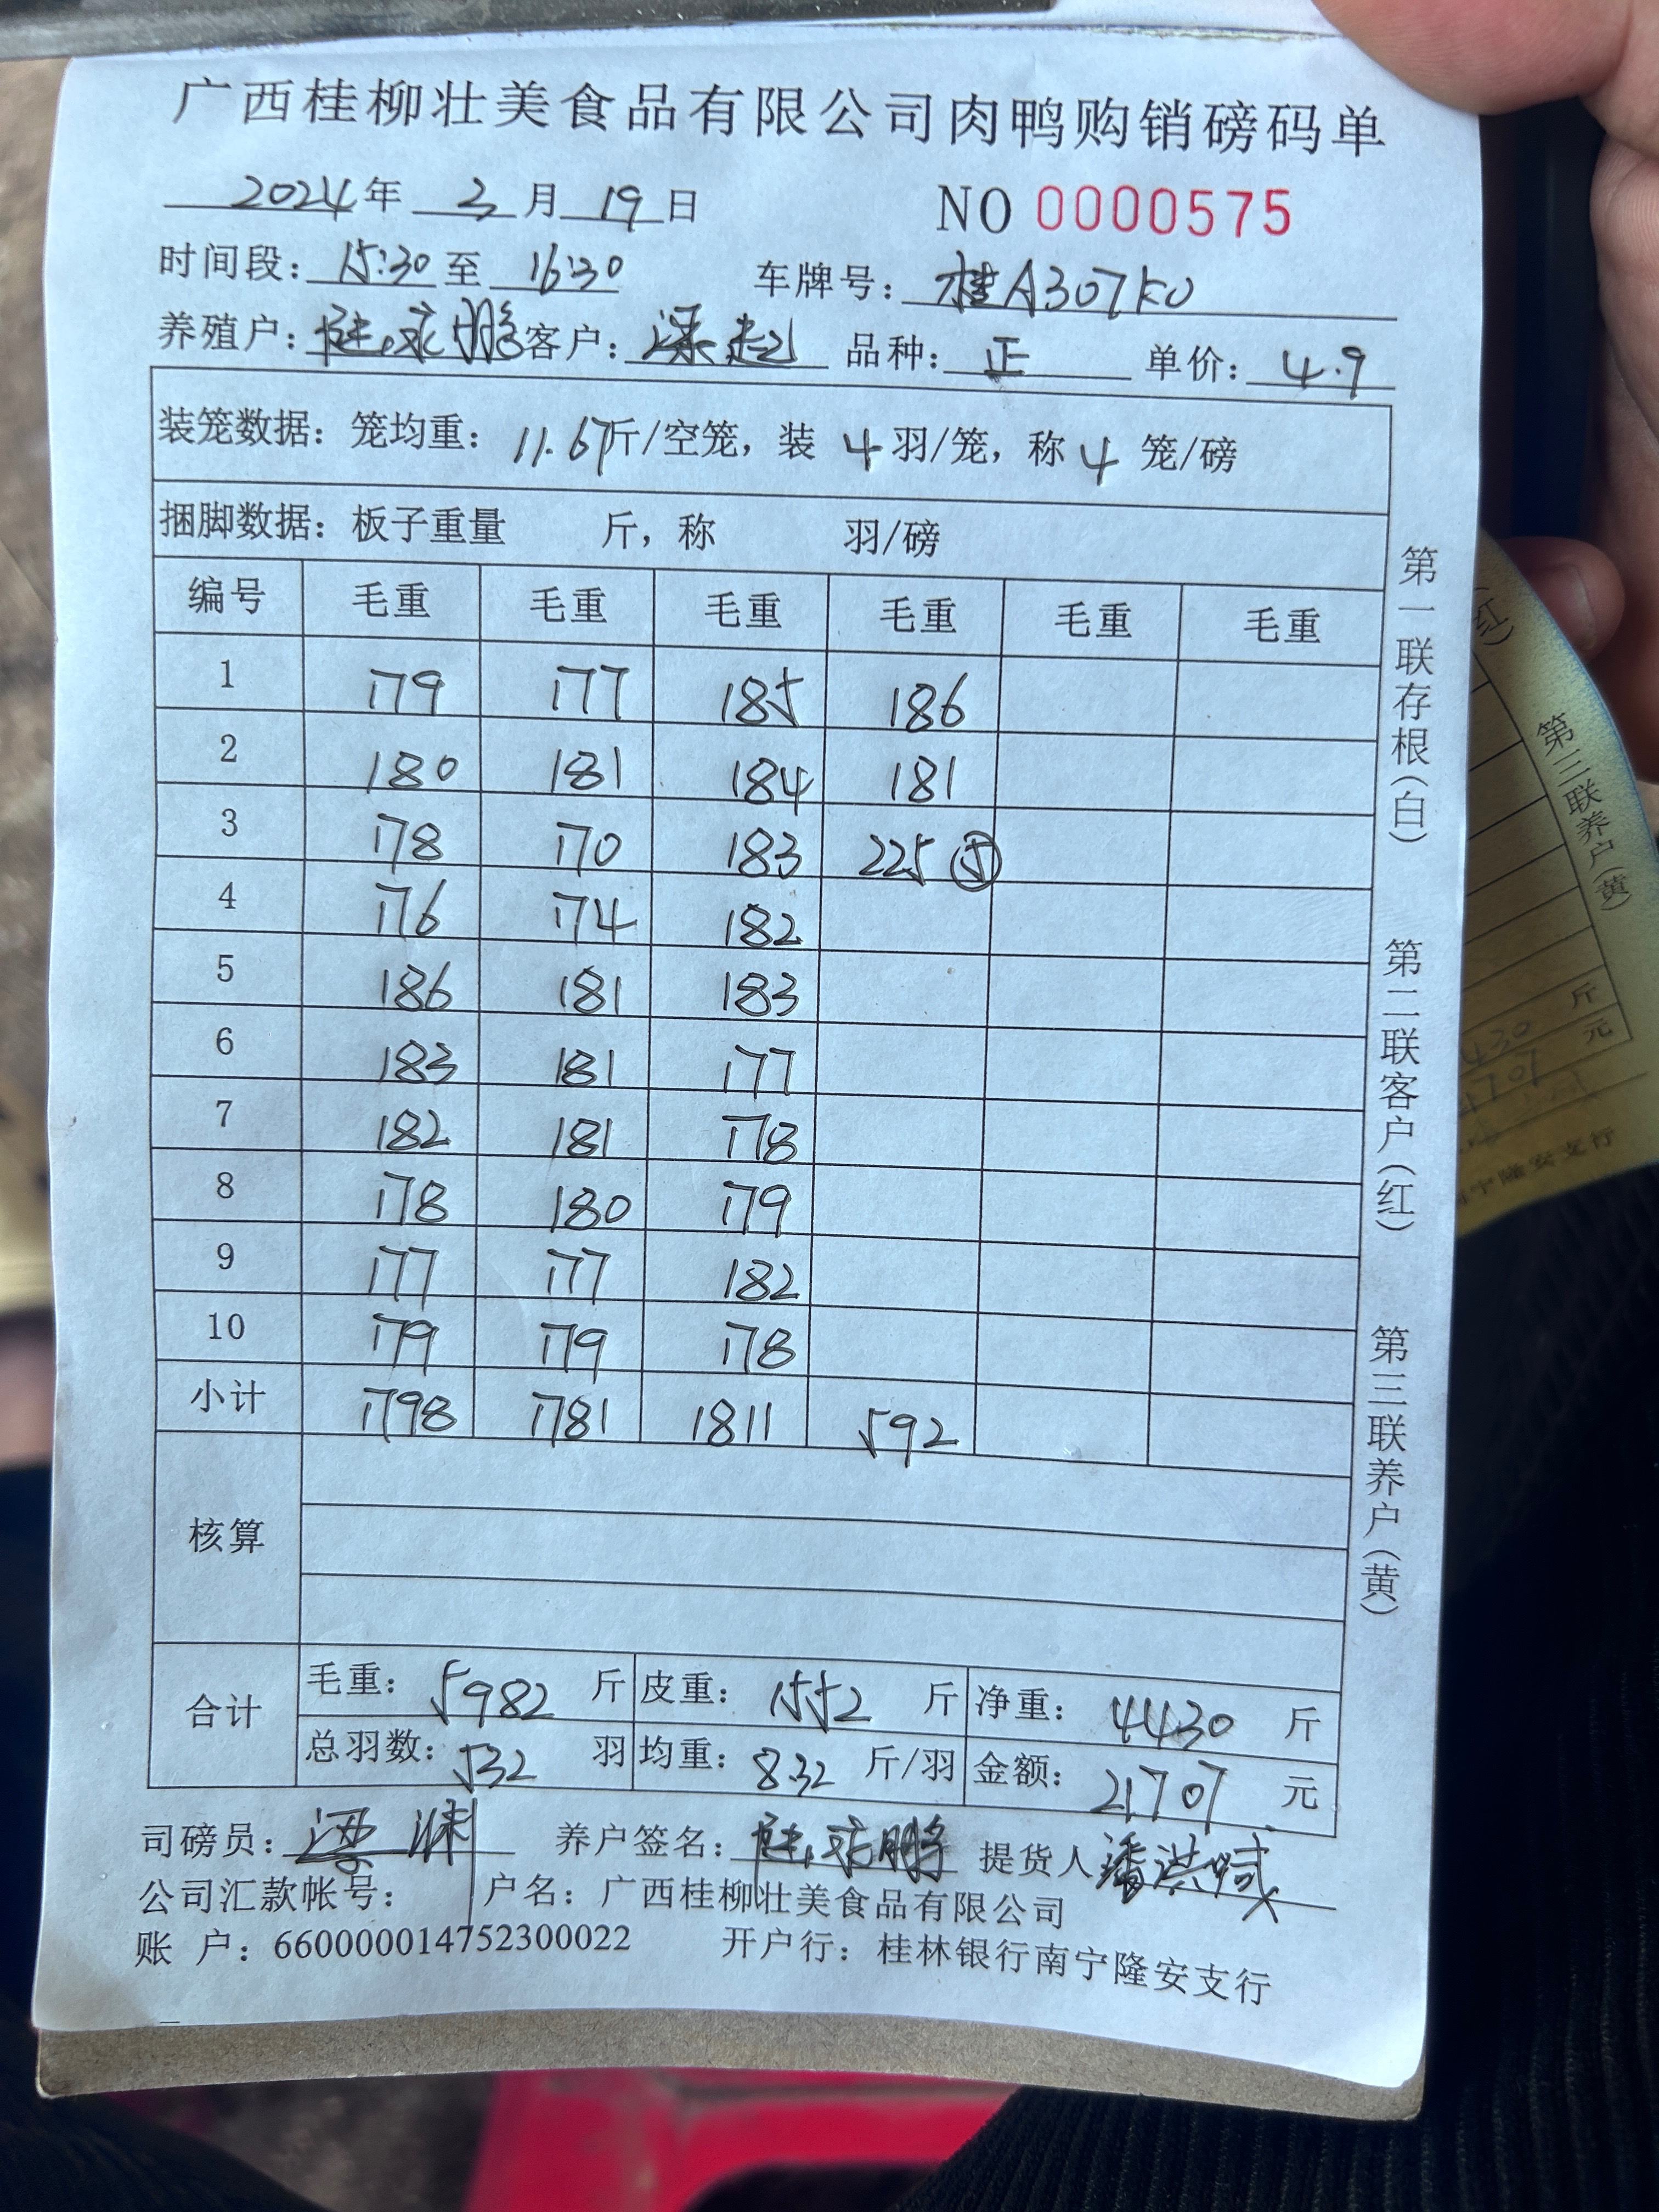 广西桂柳壮美食品有限公司肉鸭购销磅码单
2024年 3月 19日 NO 0000575
时间段：15:30 至 16:30 车牌号：桂A307K0
养殖户：陆永鹏 客户：梁起 品种：正 单价：4.9
装笼数据：笼均重：11.67斤/空笼，装 4 羽/笼，称 4 笼/磅
捆脚数据：板子重量 斤，称 羽/磅
编号 毛重 毛重 毛重 毛重 毛重 毛重
1 179 177 185 186
2 180 181 184 181
3 178 170 183 225 ⑤
4 176 174 182
5 186 181 183
6 183 181 177
7 182 181 178
8 178 180 179
9 177 177 182
10 179 179 178
小计 1798 1781 1811 592
核算
合计
毛重：5982 斤 皮重：1552 斤 净重：4430 斤
总羽数：532 羽 均重：8.32 斤/羽 金额：21707 元
司磅员： 养户签名：陆永鹏 提货人 潘洪
公司汇款帐号： 户名：广西桂柳壮美食品有限公司
账 户：660000014752300022 开户行：桂林银行南宁隆安支行
第一联存根（白） 第二联客户（红） 第三联养户（黄）
（红） 第三联养户（黄）
斤
430 元
1707
宁隆安支行